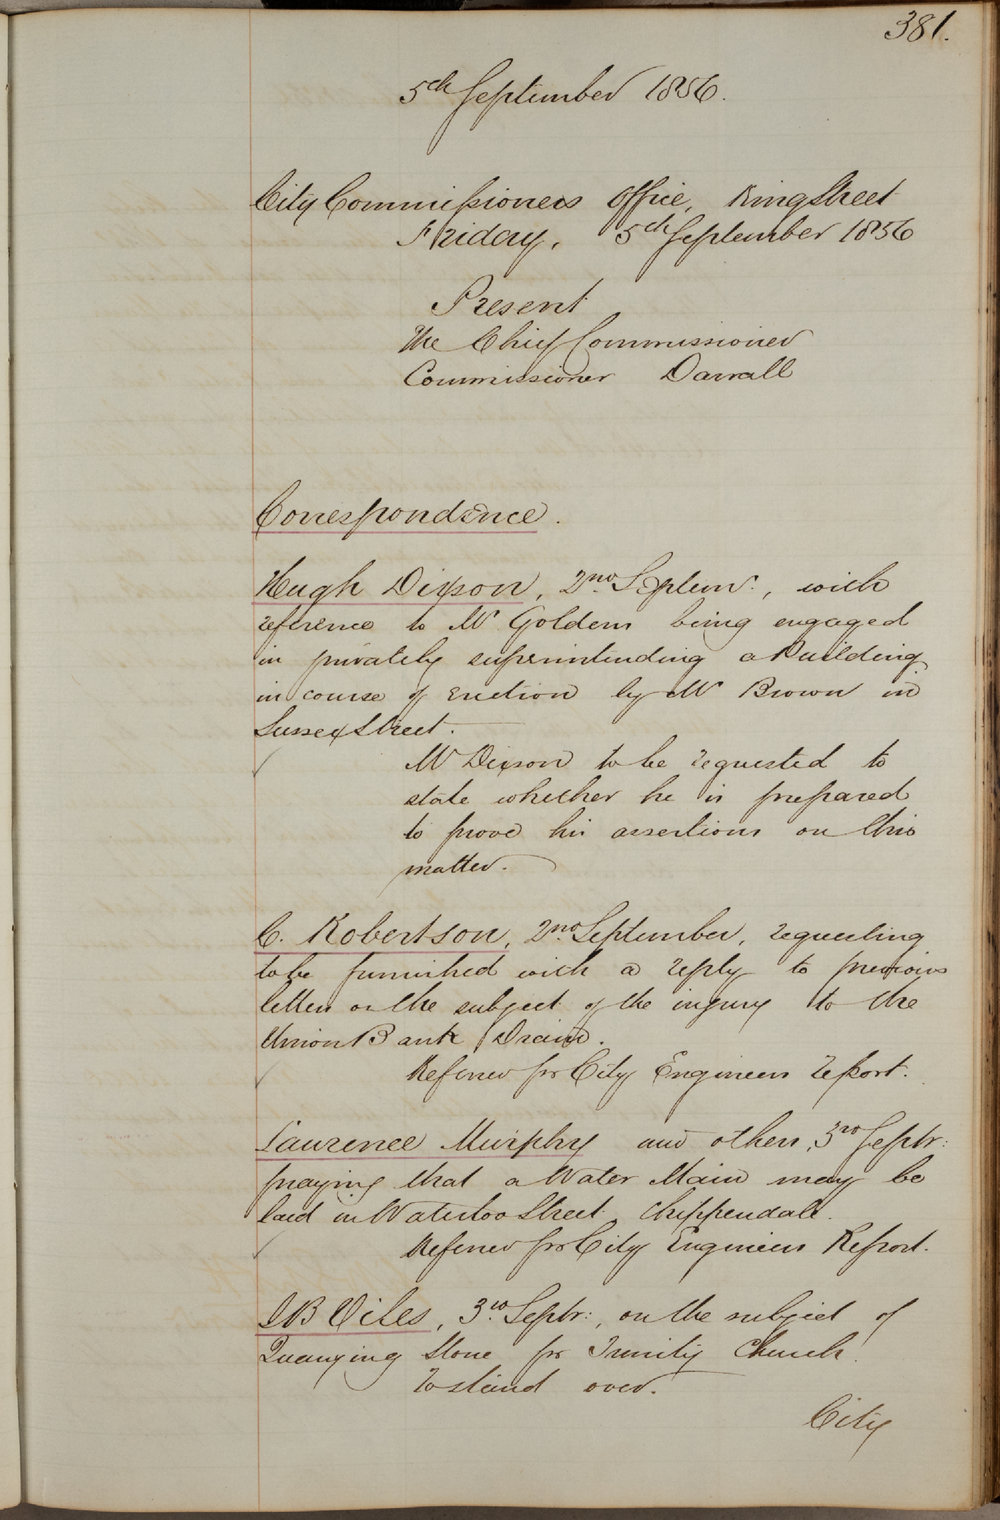 381.
5th September 1856.
City Commissioners Office, King Street
Friday, 5th September 1856
Present
The Chief Commissioner
Commissioner Darvall
Correspondence.
Hugh Dixson, 2nd Septem:, with
reference to Mr Goldens being engaged
in privately superintending a Building
in course of erection by Mr Brown in
Sussex Street.
Mr Dixson to be requested to
state whether he is prepared
to prove his assertions on this
matter.
C. Robertson, 2nd September, requesting
to be furnished with a reply to previous
letters on the subject of the injury to the
Union Bank Drain.
Referred for City Engineers report.
Laurence Murphy and others, 3rd Septr:
praying that a Water Main may be
laid in Waterloo Street Chippendale.
Referred for City Engineers Report.
J B Viles, 3rd Septr:, on the subject of
Quarrying Stone for Trinity Church.
To stand over.
City